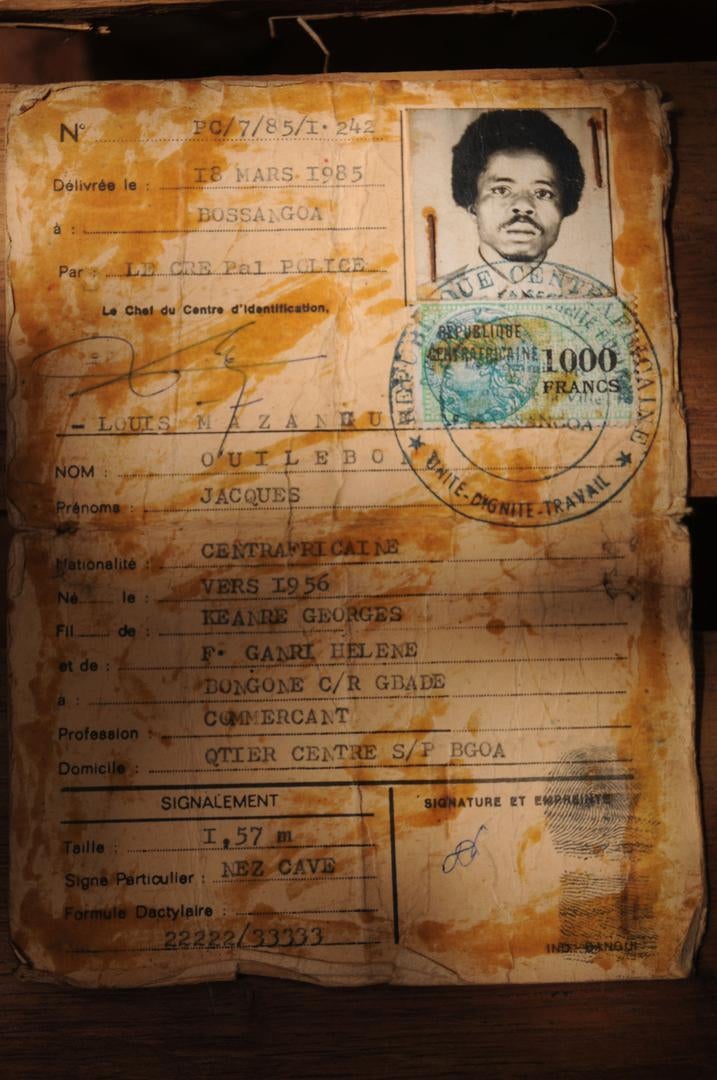 N° PC/7/85/I. 242
Délivrée le : 18 MARS 1985
à : BOSSANGOA
Par : LE CRE Pal POLICE
Le Chef du Centre d'Identification,
- LOUIS MAZANGUE
NOM : OUILEBO
Prénoms : JACQUES
Nationalité : CENTRAFRICAINE
Né le : VERS 1956
Fil de : KEANRE GEORGES
et de : F. GANRI HELENE
à : BONGONE C/R GBADE
Profession : COMMERCANT
Domicile : QTIER CENTRE S/P BGOA
RÉPUBLIQUE CENTRAFRICAINE
UNITE-DIGNITE-TRAVAIL
RÉPUBLIQUE
CENTRAFRICAINE
1000
FRANCS
SIGNALEMENT
Taille : I,57 m
Signe Particulier : NEZ CAVE
Formule Dactylaire :
22222/33333
SIGNATURE ET EMPREINTE
IND. BANGUI